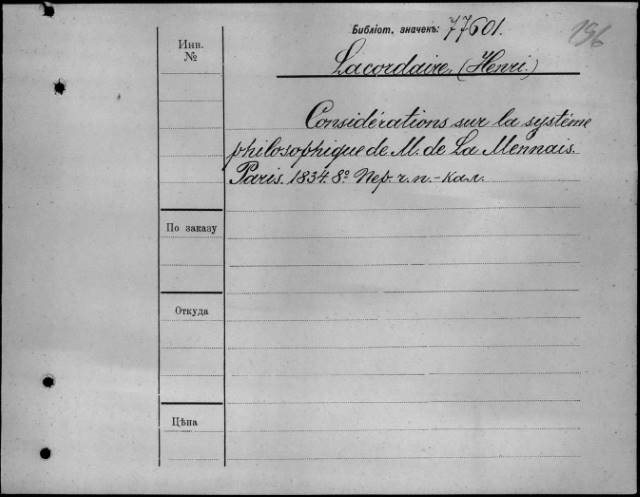 Библіот. значекъ: 77601.
196
Инв.
№
Lacordaire, (Henri.)
Considérations sur la système
philosophique de M. de La Mennais.
Paris. 1834. 8º. Пер. ч. п.-кал.
По заказу
Откуда
Цѣна